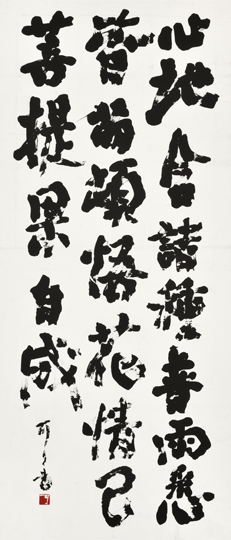 心地含諸種普雨悉
皆萌頓悟花情已
菩提果自成
可書